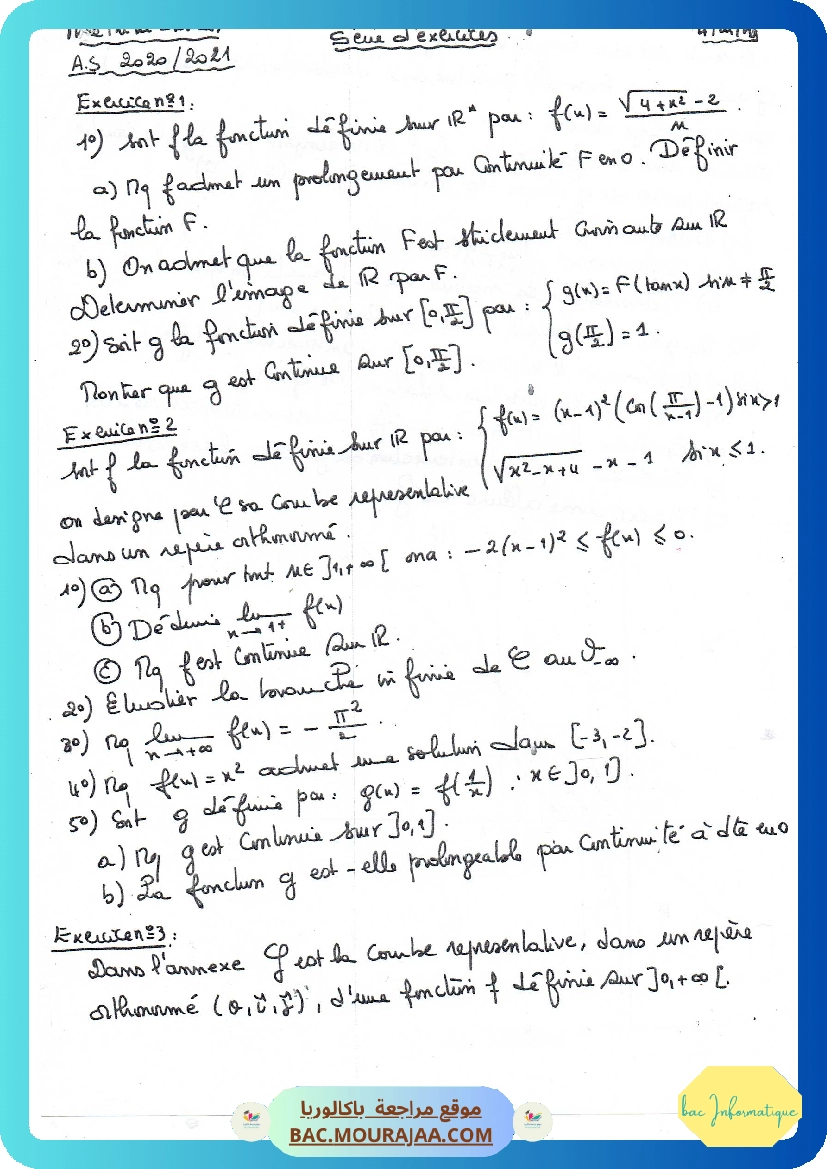 Série d'exercices
A.S 2020/2021
Exercice n°1:
1°) Soit f la fonction définie sur IR* par : f(x) = (√(4+x²) - 2)/x .
a) Mq f admet un prolongement par Continuité F en 0. Définir
la fonction F.
b) On admet que la fonction F est strictement croissante sur IR
Determiner l'image de IR par F.
2°) Soit g la fonction définie sur [0,π/2] par : { g(x) = F(tanx) si x ≠ π/2
g(π/2) = 1.
Montrer que g est Continue sur [0,π/2].
Exercice n°2
Soit f la fonction définie sur IR par : { f(x) = (x-1)² (Cos(π/(x-1)) -1) si x>1
√(x²-x+4) - x - 1 si x ≤ 1.
on designe par C sa Courbe representative
dans un repère orthonormé.
1°) (a) Mq pour tout x∈]1,+∞[ on a : -2(x-1)² ≤ f(x) ≤ 0.
(b) Déduire lim x→1+ f(x)
(c) Mq f est Continue sur IR.
2°) Etudier la branche infinie de C au V-∞.
3°) Mq lim x→+∞ f(x) = - π²/2 .
4°) Mq f(x) = x² admet une solution dans [-3,-2].
5°) Soit g définie par : g(x) = f(1/x) ; x∈]0,1].
a) Mq g est Continue sur ]0,1].
b) La fonction g est-elle prolongeable par Continuité à dte en 0
Exercice n°3:
Dans l'annexe Cf est la Courbe representative, dans un repère
orthonormé (o,i,j), d'une fonction f définie sur ]0,+∞[.
موقع مراجعة باكالوريا
BAC.MOURAJAA.COM
bac Informatique